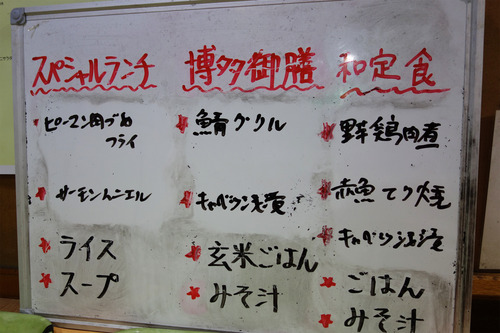 スペシャルランチ
ピーマン肉づめ
フライ
サーモンムニエル
ライス
スープ
博多御膳
鯖グリル
キャベツ浅漬
玄米ごはん
みそ汁
和定食
野菜鶏肉煮
赤魚てり焼
キャベツ浅漬
ごはん
みそ汁